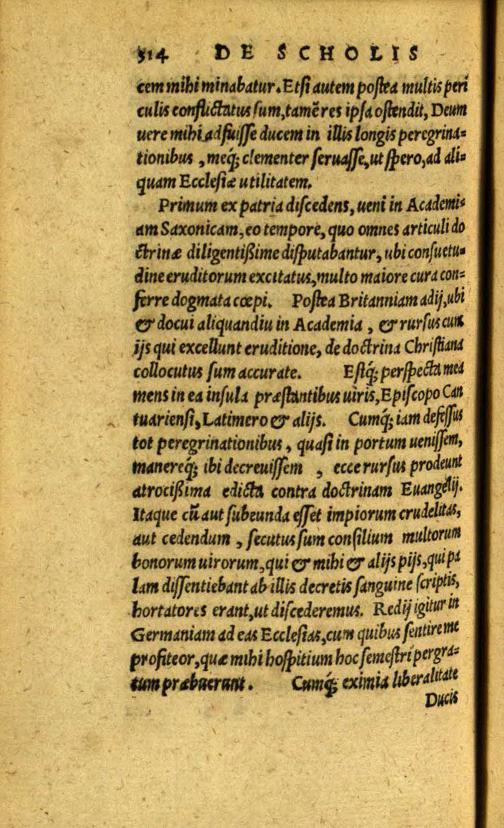 514 DE SCHOLIS
cem mihi minabatur. Etsi autem postea multis peri
culis conflictatus sum, tamē res ipsa ostendit, Deum
uere mihi adfuisse ducem in illis longis peregrina-
tionibus, meq́; clementer seruasse, ut spero, ad ali-
quam Ecclesiæ utilitatem.
Primum ex patria discedens, ueni in Academi-
am Saxonicam, eo tempore, quo omnes articuli do
ctrinæ diligentißime disputabantur, ubi consuetu-
dine eruditorum excitatus, multo maiore cura con-
ferre dogmata cœpi. Postea Britanniam adij, ubi
& docui aliquandiu in Academia, & rursus cum
ijs qui excellunt eruditione, de doctrina Christiana
collocutus sum accurate. Estq́; perspecta mea
mens in ea insula præstantibus uiris, Episcopo Can
tuariensi, Latimero & alijs. Cumq́; iam defessus
tot peregrinationibus, quasi in portum uenissem,
manereq́; ibi decreuissem, ecce rursus prodeunt
atrocißima edicta contra doctrinam Euangelij.
Itaque cū aut subeunda esset impiorum crudelitas,
aut cedendum, secutus sum consilium multorum
bonorum uirorum, qui & mihi & alijs pijs, qui pa
lam dissentiebant ab illis decretis sanguine scriptis,
hortatores erant, ut discederemus. Redij igitur in
Germaniam ad eas Ecclesias, cum quibus sentire me
profiteor, quæ mihi hospitium hoc semestri pergra-
tum præbuerunt. Cumq́; eximia liberalitate
Ducis